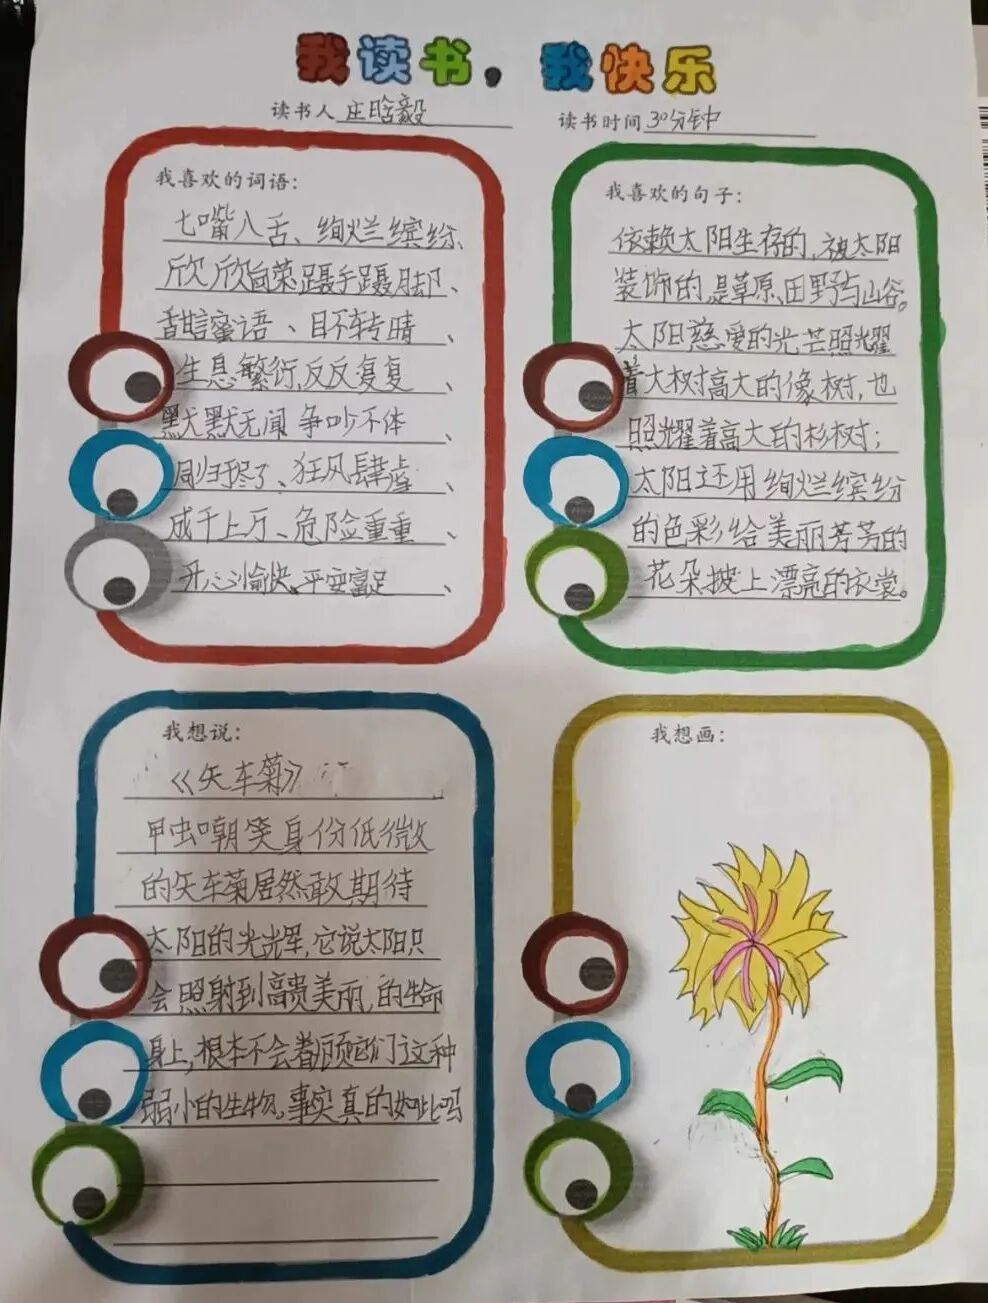 我读书，我快乐
读书人 庄晗毅 读书时间 30分钟
我喜欢的词语：
七嘴八舌、绚烂缤纷、
欣欣向荣蹑手蹑脚、
甜言蜜语、目不转睛、
生息繁衍,反反复复、
默默无闻 争吵不休、
狂风肆虐
成千上万、危险重重、
开心愉快、平安富足、
我喜欢的句子：
依赖太阳生存的,被太阳
装饰的,是草原,田野与山谷。
太阳慈爱的光芒照耀
着大树高大的像树,也
照耀着高大的杉树；
太阳还用绚烂缤纷
的色彩给美丽芳芳的
花朵披上漂亮的衣裳。
我想说：
《矢车菊》
甲虫嘲笑身份低微
的矢车菊居然敢期待
太阳的光辉,它说太阳只
会照射到高贵美丽,的生命
身上,根本不会看顾它们这种
弱小的生物,事实真的如此吗
我想画：